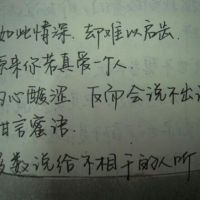 如此情深,却难以启齿.
原来你若真爱一个人
内心酸涩,反而会说不出话
甜言蜜语
多数说给不相干的人听